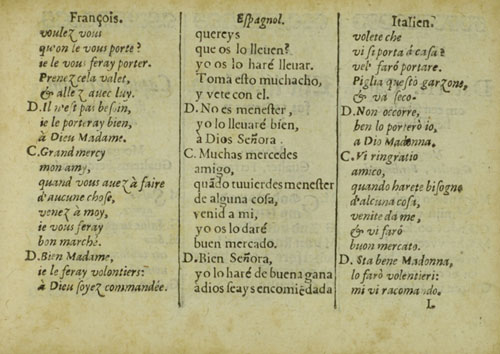 François.
voulez vous
qu'on le vous porte?
ie le vous feray porter.
Prenez cela valet,
& allez auec luy.
D. Il n'est pas besoin,
ie le porteray bien,
à Dieu Madame.
C. Grand mercy
mon amy,
quand vous auez à faire
d'aucune chose,
venez à moy,
ie vous feray
bon marché.
D. Bien Madame,
ie le feray volontiers:
à Dieu soyez commandée.
Espagnol.
quereys
que os lo lleuen?
yo os lo haré lleuar.
Toma esto muchacho,
y vete con el.
D. No es menester,
yo lo lleuaré bien,
à Dios Señora.
C. Muchas mercedes
amigo,
quãdo tuuierdes menester
de alguna cosa,
venid a mi,
yo os lo daré
buen mercado.
D. Bien Señora,
yo lo haré de buena gana
à dios seays encomẽdada
Italien.
volete che
vi si porta à casa?
vel' farò portare.
Piglia questo garzone,
& va seco.
D. Non occorre,
ben lo porterò io,
a Dio Madonna.
C. Vi ringratio
amico,
quando harete bisogno
d'alcuna cosa,
venite da me,
& vi farò
buon mercato.
D. Sta bene Madonna,
lo farò volentieri:
mi vi racomando.